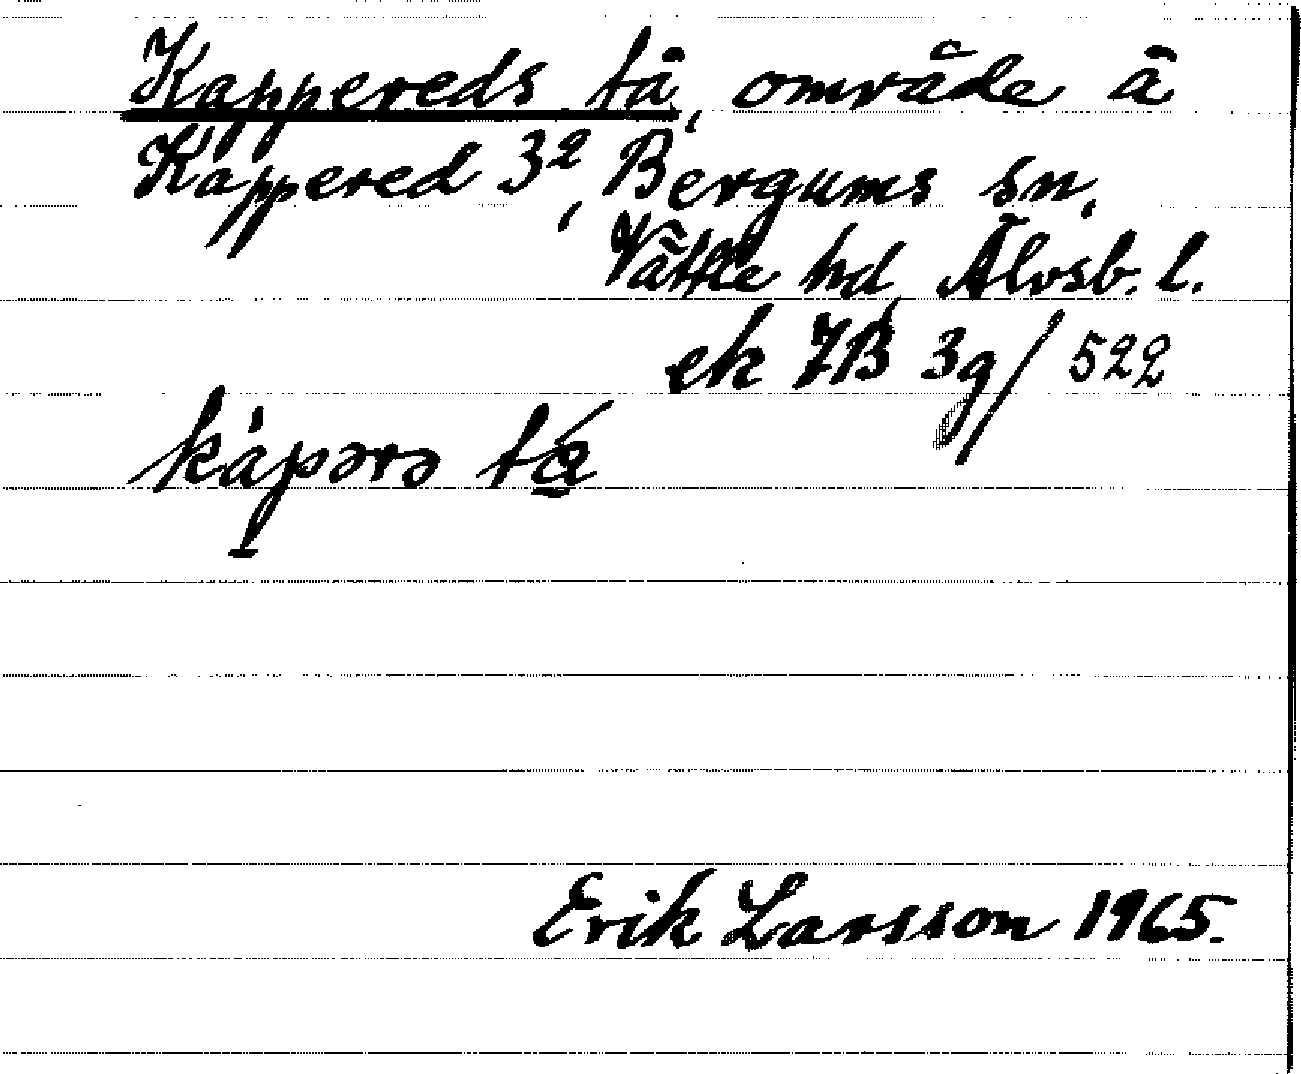 Kappereds tå, område å
Kappered 3², Bergums sn,
Vättle hd, Älvsb. l.
ek 7B 3g/522
kápərə
Erik Larsson 1965.